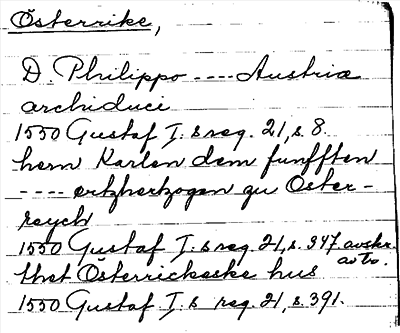 Österrike,
D. Philippo ---- Austriæ
archiduci
1550 Gustaf I:s reg. 21, s. 8.
herm Karlen dem funfften
---- ertzhertzogen zu Öster-
reych
1550 Gustaf I:s reg. 21, s. 347. avskr.
av to.
thet Österrickeske hus
1550 Gustaf I:s reg. 21, s. 391.